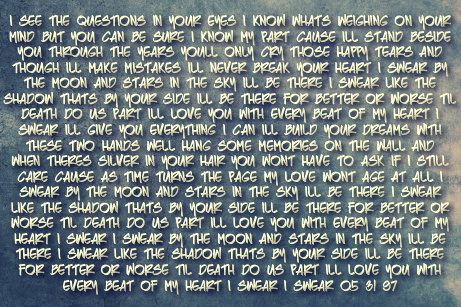 I SEE THE QUESTIONS IN YOUR EYES I KNOW WHATS WEIGHING ON YOUR
MIND BUT YOU CAN BE SURE I KNOW MY PART CAUSE ILL STAND BESIDE
YOU THROUGH THE YEARS YOULL ONLY CRY THOSE HAPPY TEARS AND
THOUGH ILL MAKE MISTAKES ILL NEVER BREAK YOUR HEART I SWEAR BY
THE MOON AND STARS IN THE SKY ILL BE THERE I SWEAR LIKE THE
SHADOW THATS BY YOUR SIDE ILL BE THERE FOR BETTER OR WORSE TIL
DEATH DO US PART ILL LOVE YOU WITH EVERY BEAT OF MY HEART I
SWEAR ILL GIVE YOU EVERYTHING I CAN ILL BUILD YOUR DREAMS WITH
THESE TWO HANDS WELL HANG SOME MEMORIES ON THE WALL AND
WHEN THERES SILVER IN YOUR HAIR YOU WONT HAVE TO ASK IF I STILL
CARE CAUSE AS TIME TURNS THE PAGE MY LOVE WONT AGE AT ALL I
SWEAR BY THE MOON AND STARS IN THE SKY ILL BE THERE I SWEAR
LIKE THE SHADOW THATS BY YOUR SIDE ILL BE THERE FOR BETTER OR
WORSE TIL DEATH DO US PART ILL LOVE YOU WITH EVERY BEAT OF MY
HEART I SWEAR I SWEAR BY THE MOON AND STARS IN THE SKY ILL BE
THERE I SWEAR LIKE THE SHADOW THATS BY YOUR SIDE ILL BE THERE
FOR BETTER OR WORSE TIL DEATH DO US PART ILL LOVE YOU WITH
EVERY BEAT OF MY HEART I SWEAR I SWEAR 05 31 97